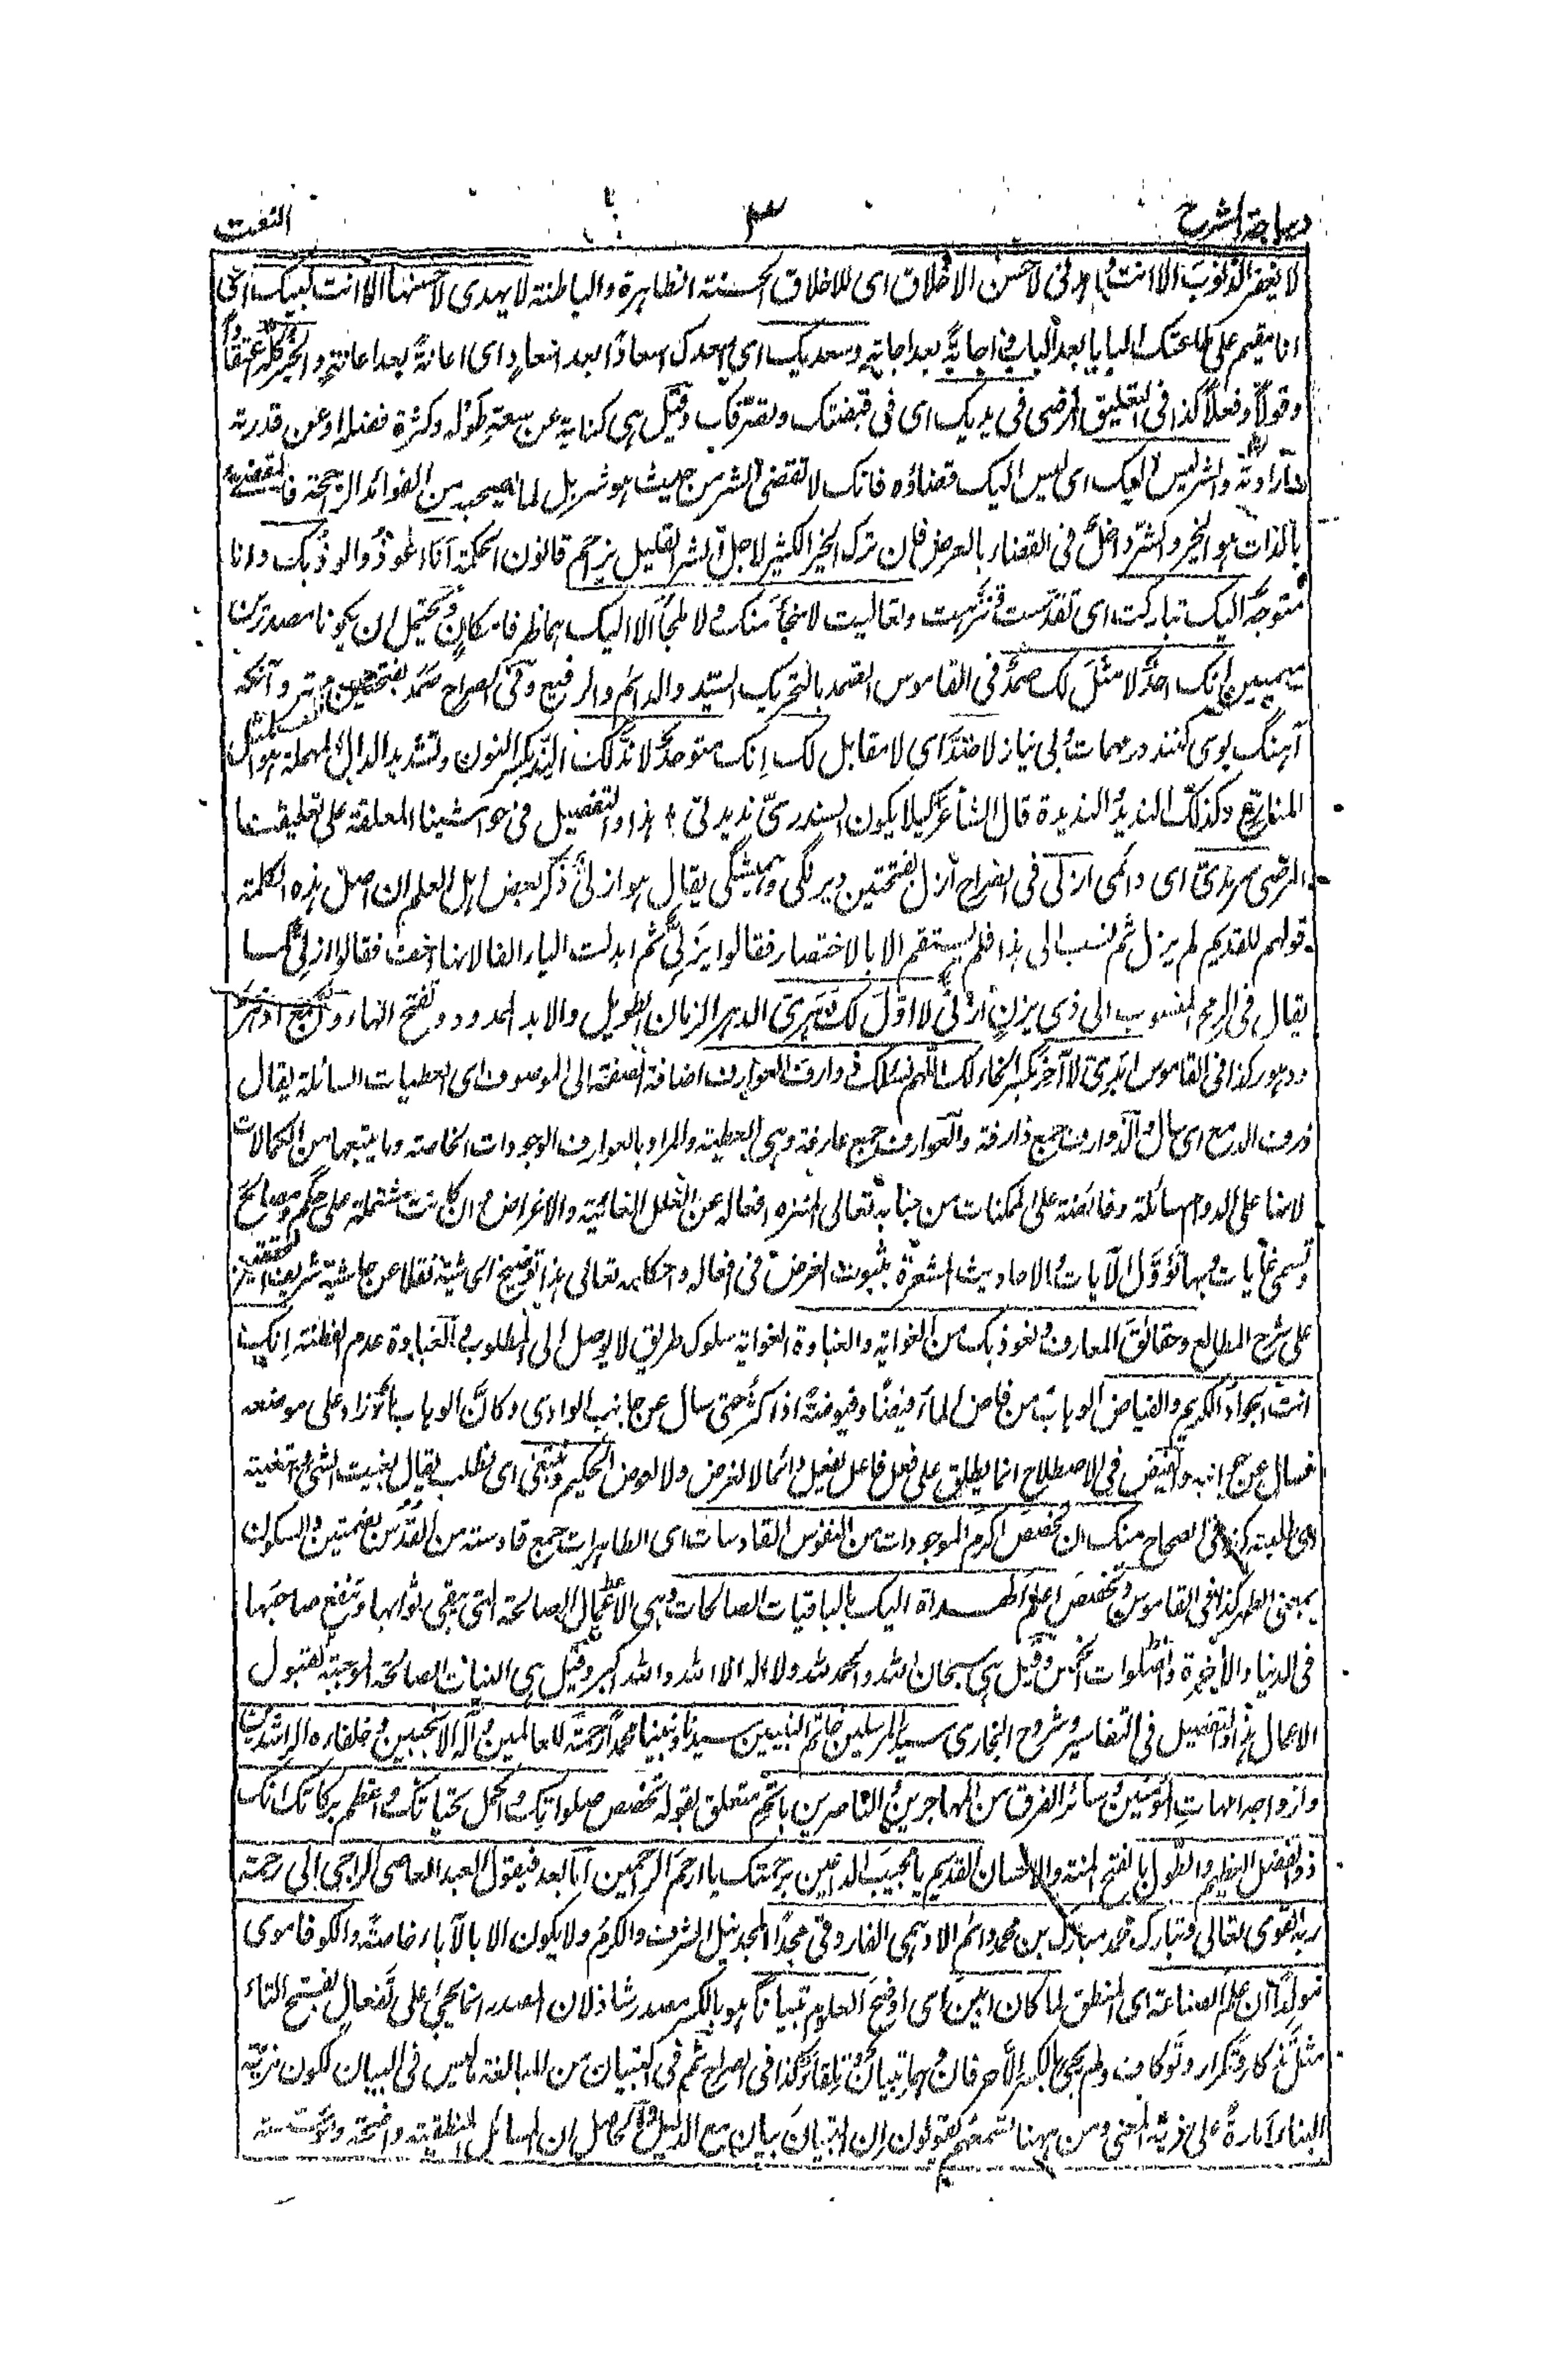 ديباجة الشرح
٣
لا يغفر الذنوب الا انت واهدنى لاحسن الاخلاق اى للاخلاق الحسنة الظاهرة والباطنة لا يهدى لاحسنها الا انت لبيك اى
انا مقيم على طاعتك البابا بعد الباب اجابة بعد اجابة وسعديك اى اسعدك اسعادًا بعد اسعاد اى اعانة بعد اعانة والخير كله
وقولا وفعلا كذا فى التعليق المرضى فى يديك اى فى قبضتك وتصرفك وقيل هى كناية عن سعة طوله وكثرة فضله او عن قدرته
وارادته والشر ليس اليك اى ليس اليك قضاؤه فانك لا تقضى الشر من حيث هو شر بل لما يصحبه من الفوائد الراجحة فالمقضى
بالذات هو الخير والشر داخل فى القضاء بالعرض فان ترك الخير الكثير لاجل الشر القليل قانون الحكمة انا اعوذ والوذ بك وانا
متوجه اليك تباركت اى تقدست وتنزهت وتعاليت لا منجأ منك ولا ملجأ الا اليك هما ظرفا مكان ويحتمل ان يكونا مصدرين
ميميين انك احد لا مثل لك صمد فى القاموس الصمد بالتحريك السيد والدائم والرفيع وفى الصراح صمد بفتحتين مهتر وآنكه
آهنگ بوى كنند در مهمات وبى نياز لا ضد اى لا مقابل لك انك متوحد لا ند لك الند بكسر النون وتشديد الدال المهملة هو المثل
المنازع وكذلك النديد والنديدة قال الشاعر كيلا يكون السندرى نديدتى هذا والتفصيل فى حواشينا المعلقة على تعليقنا
المرضى سرمدى اى دائمى ازلى فى الصراح ازل بفتحتين ديرنگى وهميشگى يقال هو ازلى ذكر بعض اهل العلم ان اصل هذه الكلمة
قولهم للقديم لم يزل ثم نسب الى هذا فلم يستقم الا بالاختصار فقالوا يزلى ثم ابدلت الياء الفا لانها اخف فقالوا ازلى كما
يقال فى الرمح المنسوب الى ذى يزن ازنى لا اول لك دهرى الدهر الزمان الطويل والابد الممدود وتفتح الهاء وج ادهر
ودهور كذا فى القاموس ابدى لا آخر بكسر الخاء لك اللهم نسئلك ذوارف العوارف اضافة الصفة الى الموصوف اى العطيات السائلة يقال
ذرف الدمع اى سال والذوارف جمع ذارفة والعوارف جمع عارفة وهى العطية والمراد بالعوارف الوجودات الخاصة وما يتبعها من الكمالات
لانها على الدوام سائلة وفائضة على الممكنات من جنابه تعالى المنزه افعاله عن العلل الغائية والاغراض وان كانت مشتملة على حكم ومصالح
وتسمى غايات وبها تؤول الآيات والاحاديث المشعرة بثبوت الغرض فى افعاله واحكامه تعالى هذا توضيح اى شيته نقلا عن حاشية شريف المحققين
على شرح المطالع وحقائق المعارف ونعوذ بك من الغواية والغباوة الغواية سلوك طريق لا يوصل الى المطلوب والغباوة عدم الفطنة انك
انت الجواد الكريم والفياض الوهاب من فاض الماء فيضًا وفيوضة اذا كثر حتى سال عن جانب الوادى وكان الوهاب ما زاد على موضعه
فسال عن جوانبه والفيض فى الاصطلاح انما يطلق على فعل فاعل يفعل دائما لا لغرض ولا لعوض الحكيم ونبتغى اى نطلب يقال بغيت الشئ وابتغيته
اى طلبته كذا فى الصحاح منك ان تخصص اكرم الموجودات من النفوس القادسات اى الطاهرات جمع قادسة من القدس بضمتين والسكون
بمعنى الطهر كذا فى القاموس وتخصص اعلم الهداة اليك بالباقيات الصالحات وهى الاعمال الصالحة التى يبقى ثوابها وتنفع صاحبها
فى الدنيا والآخرة والصلوات الخمس وقيل هى سبحان الله والحمد لله ولا اله الا الله والله اكبر وقيل هى النيات الصالحة الموجبة لقبول
الاعمال هذا والتفصيل فى التفاسير وشروح البخارى سيد المرسلين خاتم النبيين سيدنا ونبينا محمدًا رحمة للعالمين وآله الانجبين وخلفاءه الراشدين
وازواجه امهات المؤمنين وسائر الفرق من المهاجرين والناصرين باتم متعلق بقوله تخصص صلواتك واكمل تحياتك واعظم بركاتك انك
ذو الفضل العظيم والطول بالفتح المنة والاحسان القديم يا مجيب الداعين برحمتك يا ارحم الرحمين اما بعد فيقول العبد العاصى الراجى الى رحمة
ربه القوى تعالى وتبارك محمد مبارك بن محمد دائم الادهمى الفاروقى مجدًا المجد نيل الشرف والكرم ولا يكون الا بالآباء خاصة والكوفاموى
مولدًا ان علم الصناعة اى المنطق لما كان ابين اى اوضح العلوم تبيانا هو بالكسر مصدر شاذ لان المصدر انما يجئ على تفعال بفتح التاء
مثل تذكار وتكرار وتوكاف ولم يجئ بالكسر الا حرفان وهما تبيان وتلقاء كذا فى الصراح ثم فى التبيان من المبالغة ما ليس فى البيان لكون مزية
البناء امارة على مزية المعنى ومن ههنا تسمعهم يقولون ان التبيان بيان مع الدليل والحاصل ان المسائل المنطقية واضحة